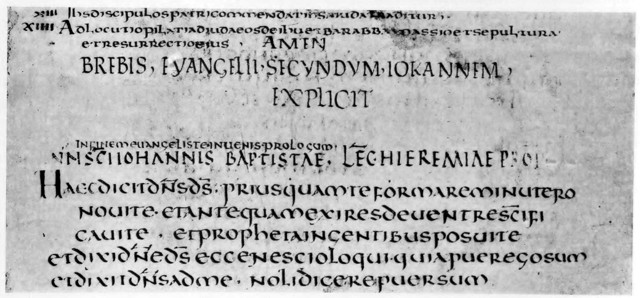 XIII Ihs discipulos patri commendat a iuda traditur
XIIII Adlocutio pilati ad iudaeos de ihu et barabba passio et sepultura
et resurrectio eius AMEN
BREBIS, EVANGELII·SECVNDVM·IOHANNEM,
EXPLICIT
In finem euangeliste inuenis·prologum
IN N SCI IOHANNIS BAPTISTAE. LEC HIEREMIAE PRO
Haec dicit dns ds·prius quam te formarem in utero
noui te·et antequam exires de uentre scifi
caui te·et propheta in gentibus posui te
et dixi dne ds ecce nescio loqui·quia puer ego sum
et dixit dns ad me·noli dicere puer sum